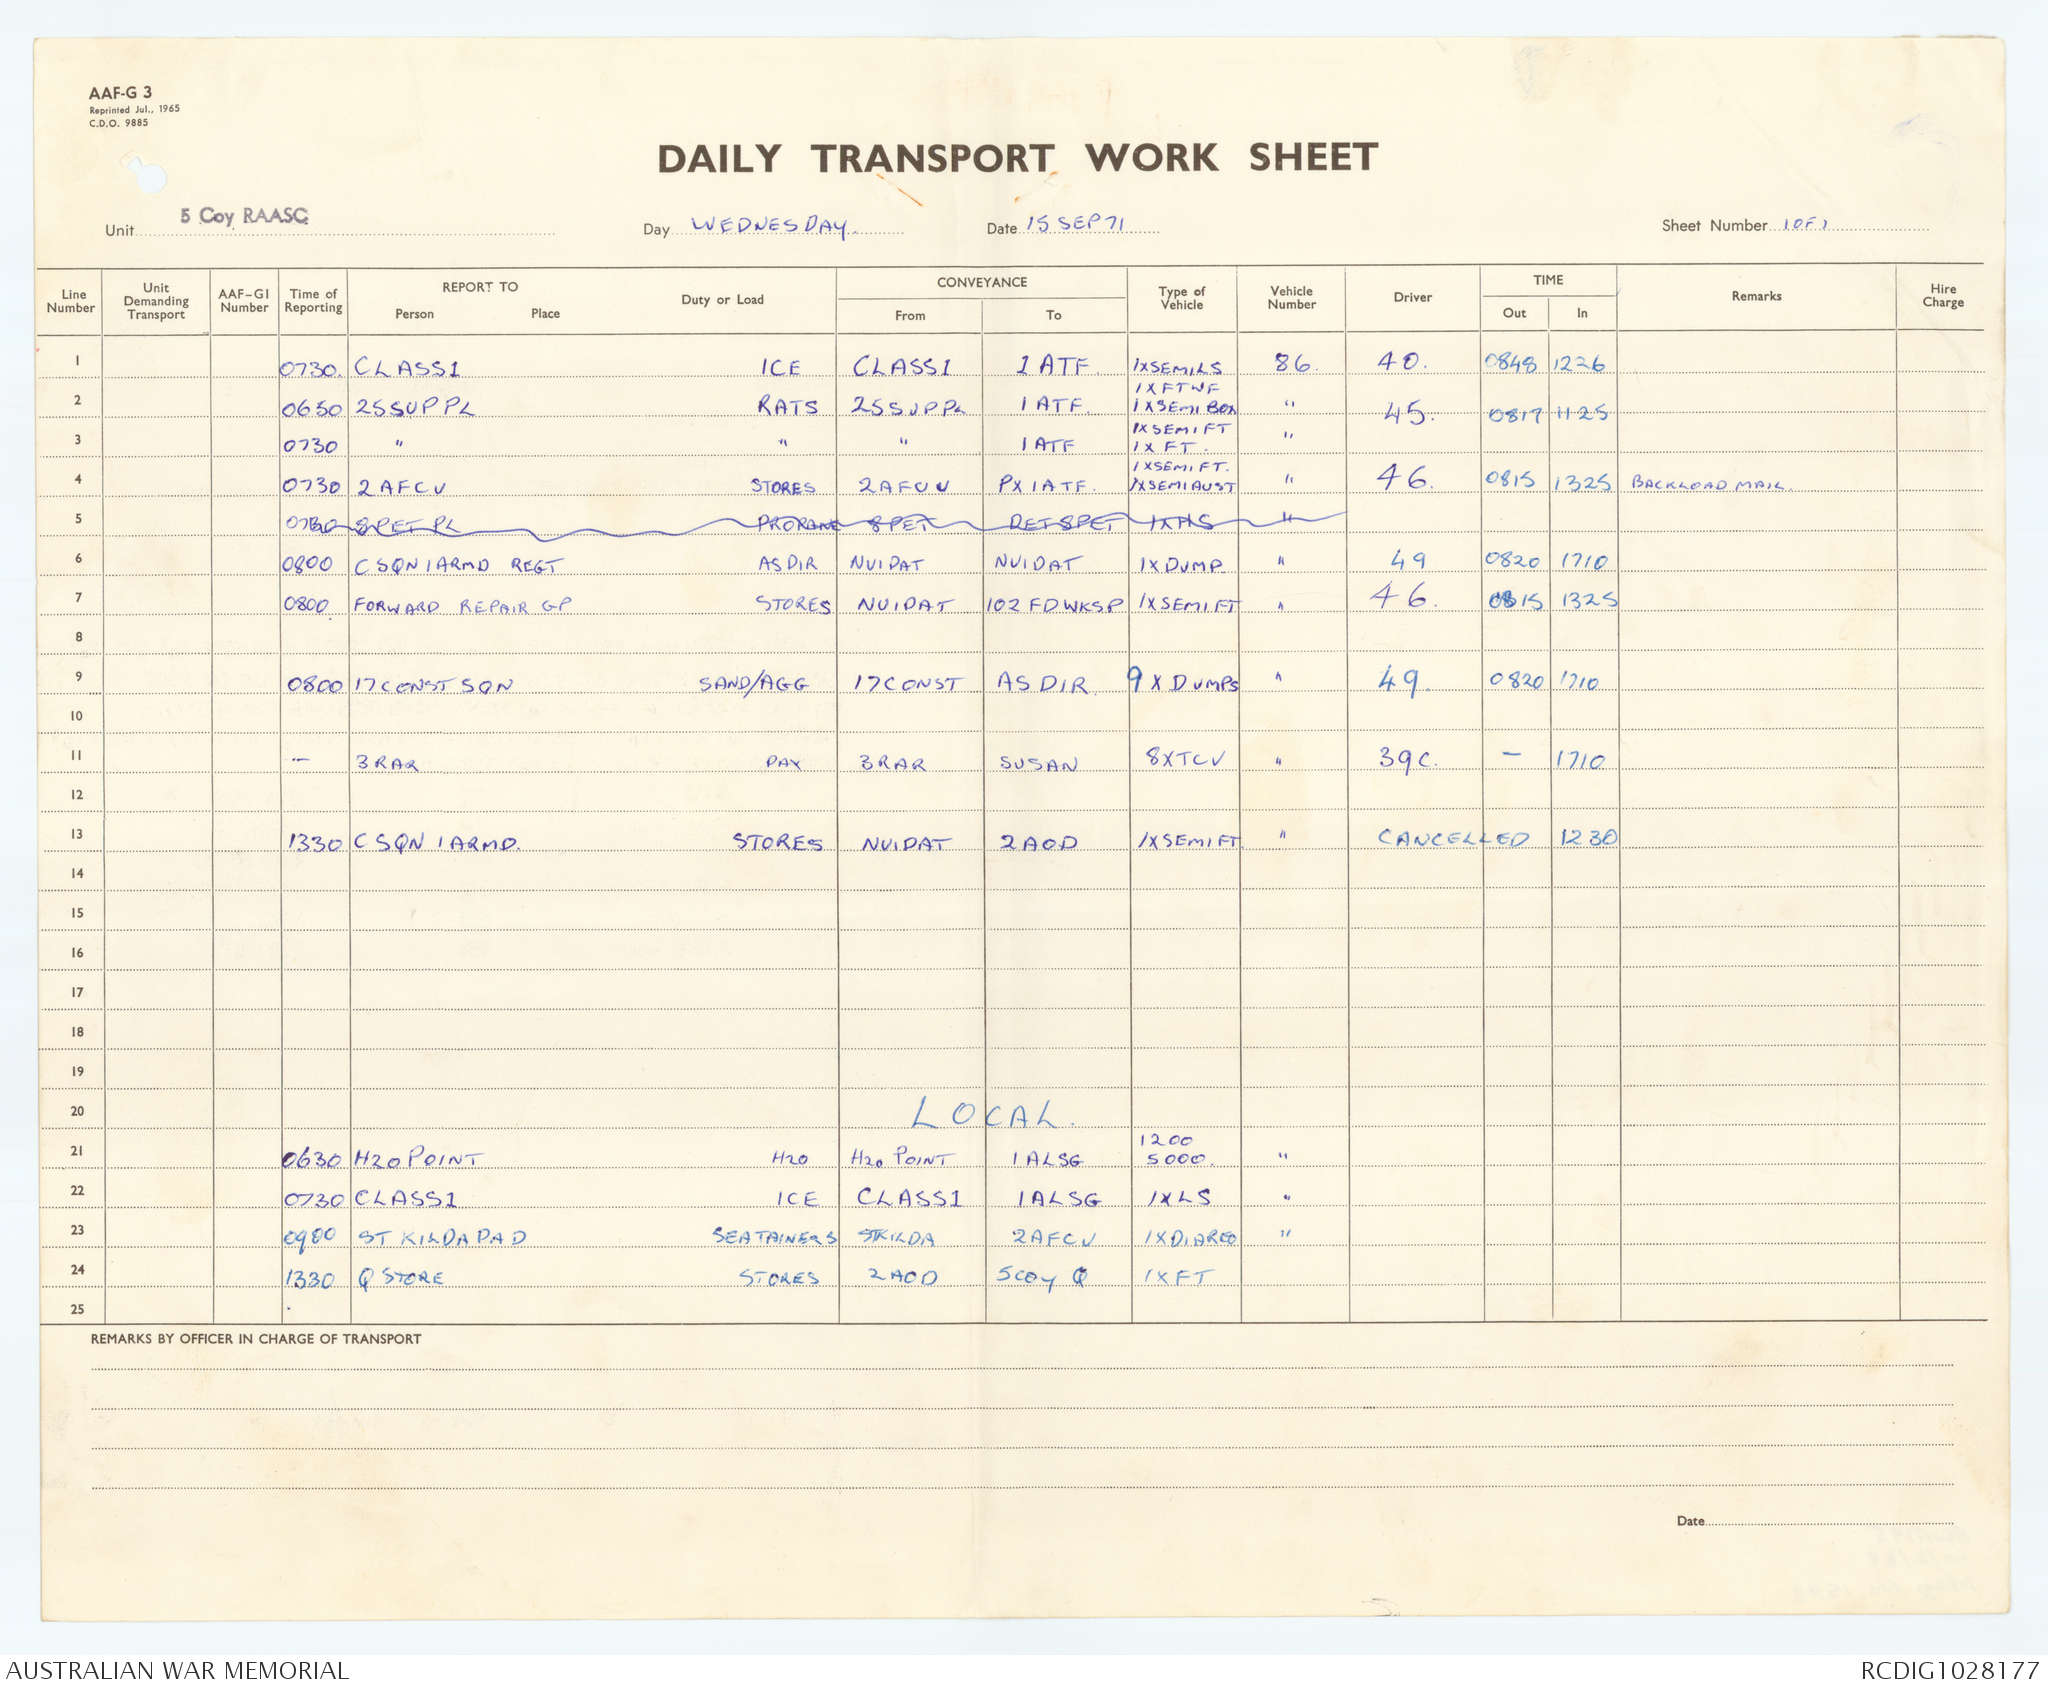 AAF-G 3
Reprinted Jul., 1965
C.D.O. 9885
DAILY TRANSPORT WORK SHEET
Unit 5 Coy RAASC Day WEDNESDAY. Date 15 SEP 71 Sheet Number 1 OF 1
Line Number Unit Demanding Transport AAF-G1 Number Time of Reporting REPORT TO Person Place Duty or Load CONVEYANCE From To Type of Vehicle Vehicle Number Driver TIME Out In Remarks Hire Charge
1 0730. CLASS1 ICE CLASS1 1 ATF. 1XSEMILS 86. 40. 0848 1226
1XFTWF
2 0630 25SUPPL RATS 25SUPPL 1 ATF. 1XSEMI BOX " 45. 0817 1125
1XSEMIFT
3 0730 " " " 1 ATF 1X FT. "
1XSEMIFT.
4 0730 2AFCV STORES 2AFCV PX 1ATF. 1XSEMIAUST " 46. 0815 1325 BACKLOAD MAIL.
5 0730 8PET PL 8PET DET8PET "
6 0800 CSQN 1ARMD REGT ASDIR NUIDAT NUIDAT 1XDUMP " 49 0820 1710
7 0800. FORWARD REPAIR GP STORES NUIDAT 102 FDWKSP 1XSEMIFT " 46. 0815 1325
8
9 0800 17CONST SQN SAND/AGG 17CONST ASDIR. 9 X DUMPS " 49. 0820 1710
10
11 - 3RAR PAX 3RAR SUSAN 8XTCV " 39C. - 1710
12
13 1330 CSQN 1ARMD. STORES NUIDAT 2AOD 1XSEMIFT " CANCELLED 1230
14
15
16
17
18
19
20 LOCAL.
1200
21 0630 H2O POINT H2O H2O POINT 1ALSG 5000. "
22 0730 CLASS1 ICE CLASS1 1ALSG 1XLS "
23 0900 ST KILDA PAD SEATAINERS STKILDA 2AFCV "
24 1330 Q STORE STORES 2AOD 5COY Q 1XFT
25
REMARKS BY OFFICER IN CHARGE OF TRANSPORT
Date
AUSTRALIAN WAR MEMORIAL RCDIG1028177